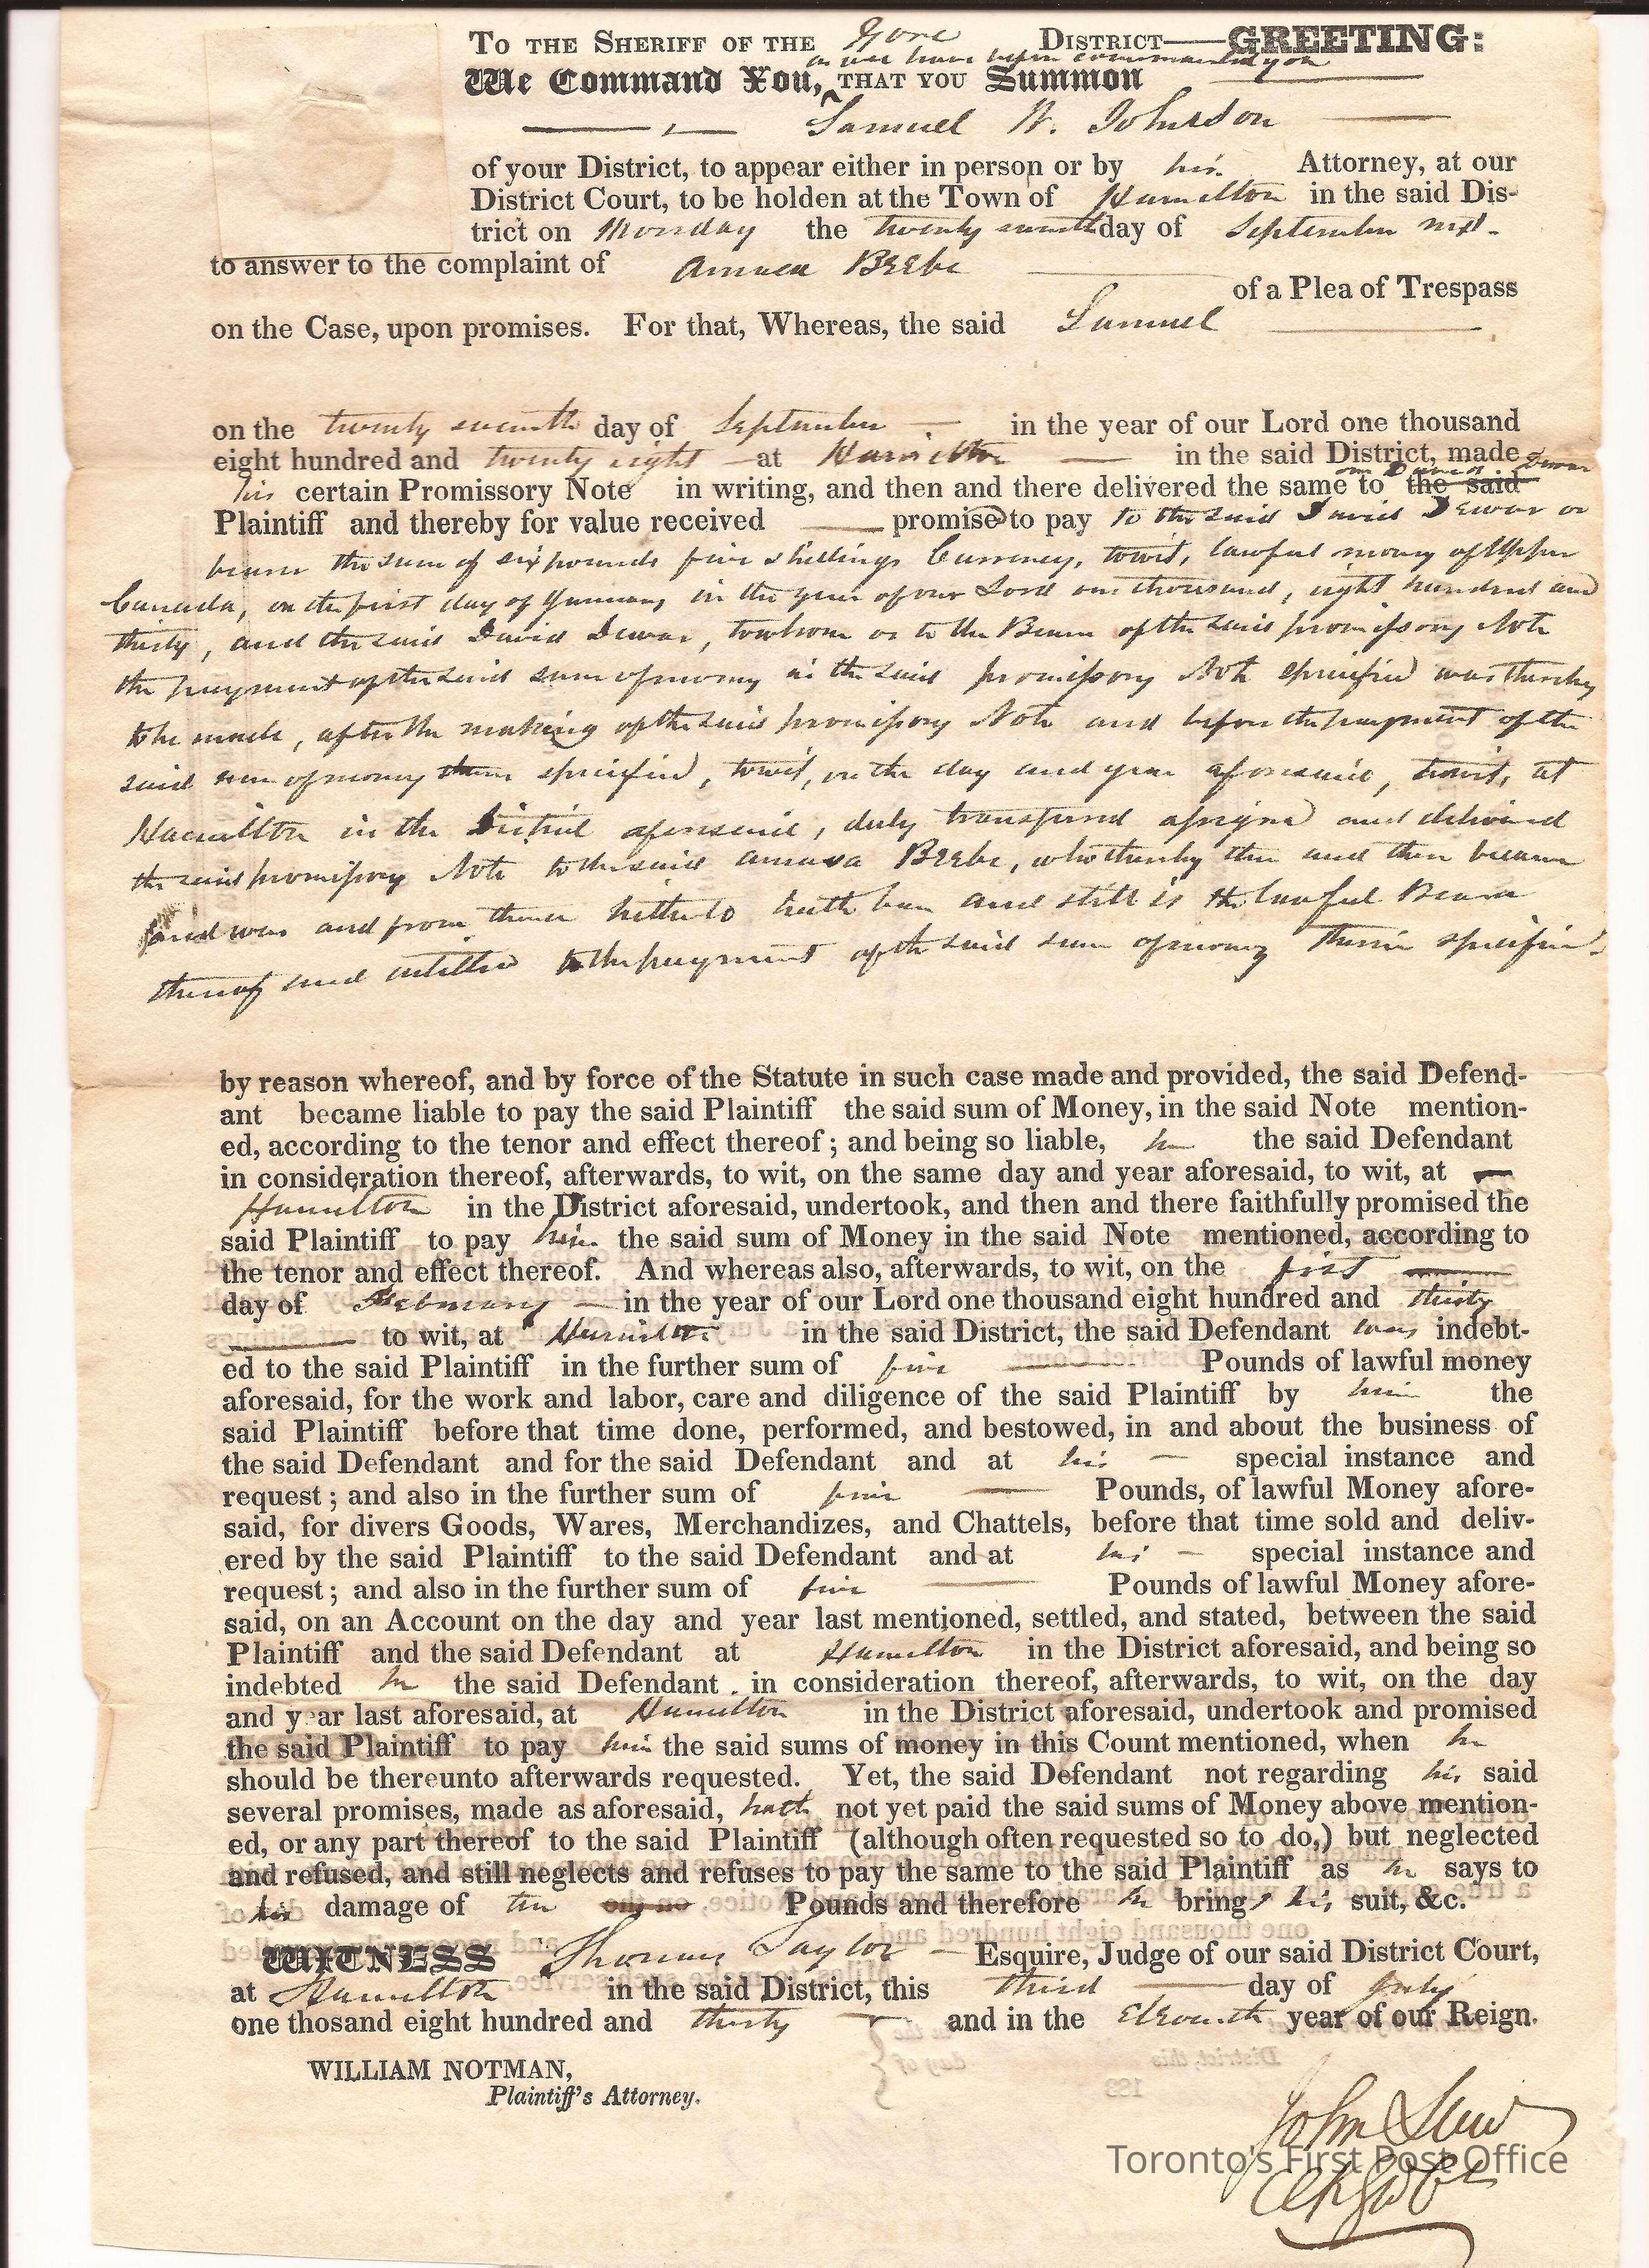 TO THE SHERIFF OF THE Gore DISTRICT—GREETING:
as we have before commanded you
We Command You, THAT YOU Summon
Samuel W. Johnson
of your District, to appear either in person or by his Attorney, at our
District Court, to be holden at the Town of Hamilton in the said Dis-
trict on Monday the twenty seventh day of September next
to answer to the complaint of Amasa Beebe
of a Plea of Trespass
on the Case, upon promises. For that, Whereas, the said Samuel
on the twenty seventh day of September in the year of our Lord one thousand
eight hundred and twenty eight at Hamilton in the said District, made
one David Dewar
his certain Promissory Note in writing, and then and there delivered the same to the said
Plaintiff and thereby for value received promise to pay to the said David Dewar or
bearer the sum of six pounds five shillings Currency, towit, lawful money of Upper
Canada, on the first day of January in the year of our Lord one thousand, eight hundred and
thirty, and the said David Dewar, to whom or to the Bearer of the said promissory Note
the payment of the said sum of money in the said promissory Note specified was thereby
to be made, after the making of the said promissory Note and before the payment of the
said sum of money therein specified, towit, on the day and year aforesaid, towit, at
Hamilton in the District aforesaid, duly transferred assigned and delivered
the said promissory Note to the said Amasa Beebe, who thereby then and there became
and was and from thence hitherto hath been and still is the lawful Bearer
thereof and intitled to the payment of the said sum of money therein specified
by reason whereof, and by force of the Statute in such case made and provided, the said Defend-
ant became liable to pay the said Plaintiff the said sum of Money, in the said Note mention-
ed, according to the tenor and effect thereof; and being so liable, he the said Defendant
in consideration thereof, afterwards, to wit, on the same day and year aforesaid, to wit, at
Hamilton in the District aforesaid, undertook, and then and there faithfully promised the
said Plaintiff to pay him the said sum of Money in the said Note mentioned, according to
the tenor and effect thereof. And whereas also, afterwards, to wit, on the first
day of February in the year of our Lord one thousand eight hundred and thirty
to wit, at Hamilton in the said District, the said Defendant was indebt-
ed to the said Plaintiff in the further sum of five Pounds of lawful money
aforesaid, for the work and labor, care and diligence of the said Plaintiff by him the
said Plaintiff before that time done, performed, and bestowed, in and about the business of
the said Defendant and for the said Defendant and at his special instance and
request; and also in the further sum of five Pounds, of lawful Money afore-
said, for divers Goods, Wares, Merchandizes, and Chattels, before that time sold and deliv-
ered by the said Plaintiff to the said Defendant and at his special instance and
request; and also in the further sum of five Pounds of lawful Money afore-
said, on an Account on the day and year last mentioned, settled, and stated, between the said
Plaintiff and the said Defendant at Hamilton in the District aforesaid, and being so
indebted he the said Defendant in consideration thereof, afterwards, to wit, on the day
and year last aforesaid, at Hamilton in the District aforesaid, undertook and promised
the said Plaintiff to pay him the said sums of money in this Count mentioned, when he
should be thereunto afterwards requested. Yet, the said Defendant not regarding his said
several promises, made as aforesaid, hath not yet paid the said sums of Money above mention-
ed, or any part thereof to the said Plaintiff (although often requested so to do,) but neglected
and refused, and still neglects and refuses to pay the same to the said Plaintiff as he says to
his damage of ten Pounds and therefore he brings his suit, &c.
WITNESS Thomas Taylor Esquire, Judge of our said District Court,
at Hamilton in the said District, this third day of July
one thosand eight hundred and thirty and in the Eleventh year of our Reign.
WILLIAM NOTMAN,
Plaintiff's Attorney.
John Law
Toronto's First Post Office